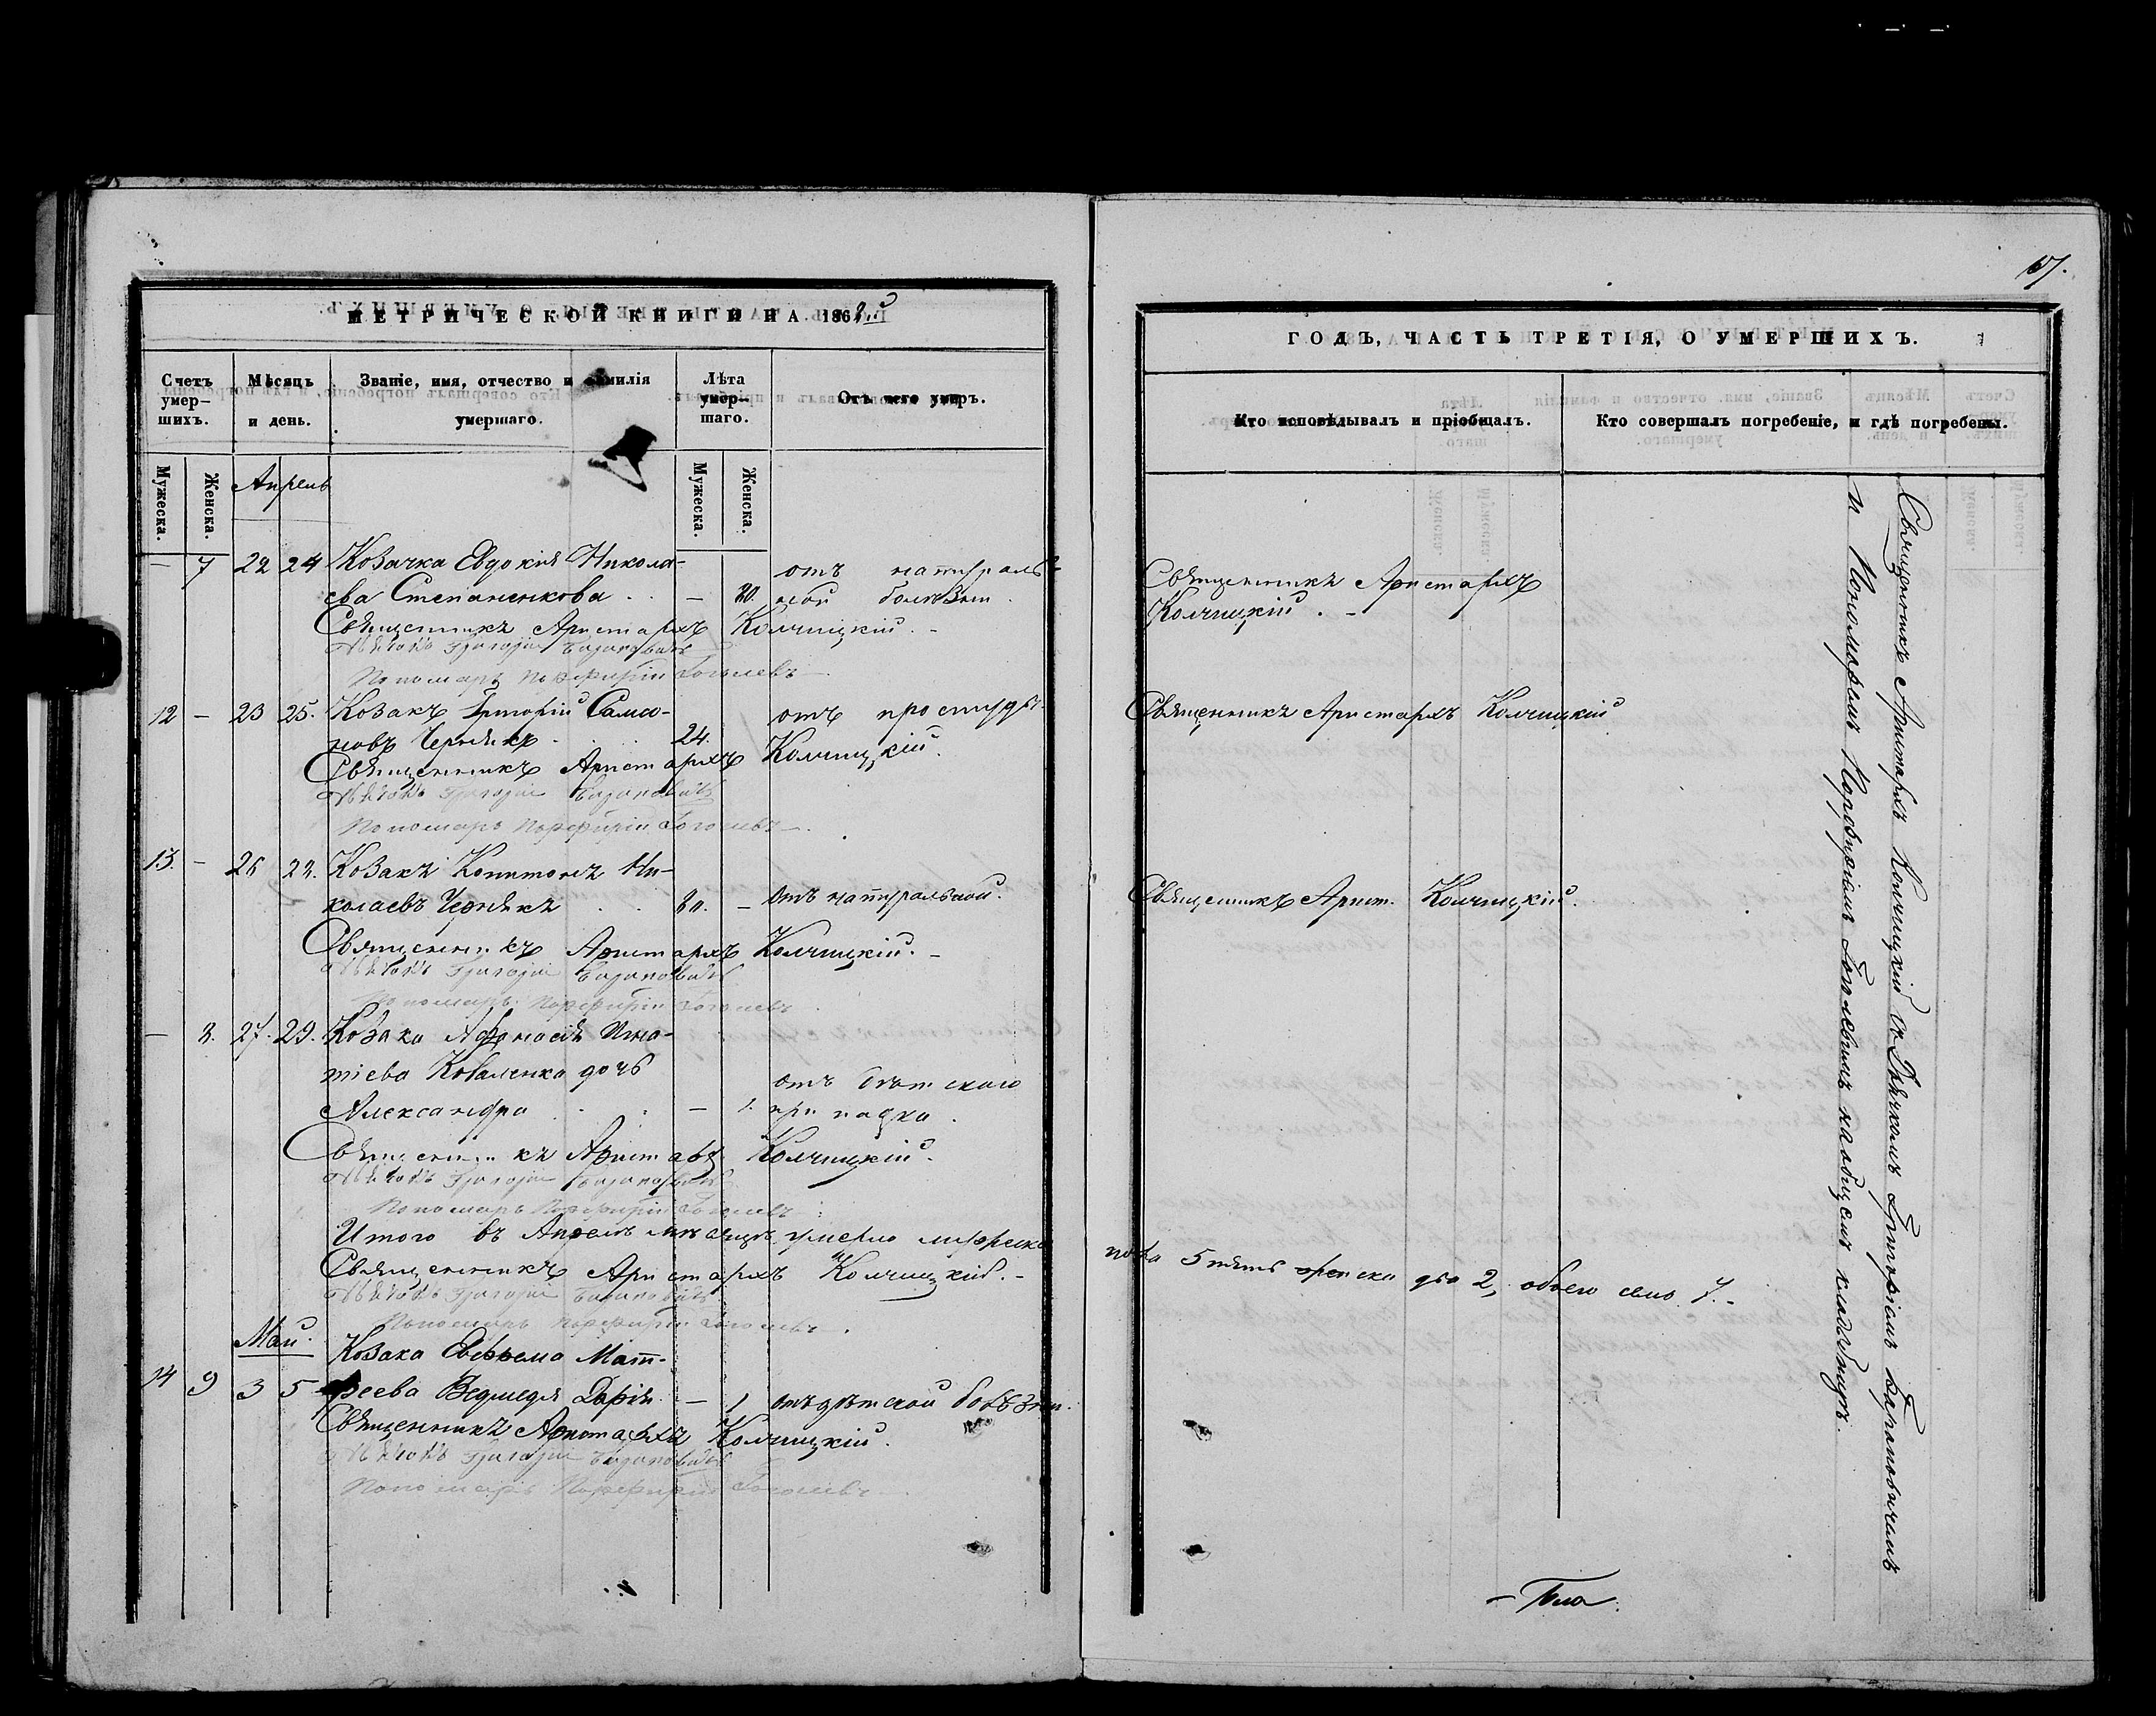 МЕТРИЧЕСКОЙ КНИГИ НА 1862й
Счетъ умер-
шихъ.
Мѣсяцъ
и день.
Званіе, имя, отчество и фамилія
умершаго.
Лѣта
умер-
шаго.
Отъ чего умеръ.
Мужеска.
Женска.
Апрель
Мужеска.
Женска.
— 7 22 24 Козачка Евдокія Никола-
ева Степаненкова . . — отъ натураль-
ной болѣзни.
Священникъ Аристархъ Колчицкій. -
Дьячокъ Григорій Барановичъ
Пономарь Порфирій Гоголевъ
12 — 23 25. Козакъ Григорій Самсо-
новъ Чернякъ . . 24. отъ простуды.
Священникъ Аристархъ Колчицкій.
Дьячокъ Григорій Барановичъ
Пономарь Порфирій Гоголевъ —.
13. — 26 Козакъ Капитонъ Ни-
колаевъ Чернякъ . . — отъ натуральной.
Священникъ Аристархъ Колчицкій. -
Дьячокъ Григорій Барановичъ
Пономарь Порфирій Гоголевъ
— 8. 27. 29. Козака Афанасія Игна-
тіева Коваленка дочь
Александра . . . — 1. отъ дѣтскаго
припадка.
Священникъ Аристархъ Колчицкій.
Дьячокъ Григорій Барановичъ
Пономарь Порфирій Гоголевъ
Итого въ Апрелѣ мѣсяцѣ умерло мужеска
Священникъ Аристархъ Колчицкій. -
Дьячокъ Григорій Барановичъ
Пономарь Порфирій Гоголевъ.
Май.
14 9 3 5 Козака Евфима Мат-
феева Ведмедя Дарія. — 1 отъ дѣтской болѣзни.
Священникъ Аристархъ Колчицкій.
Дьячокъ Григорій Барановичъ
Пономарь Порфирій Гоголевъ
ГОДЪ, ЧАСТЬ ТРЕТІЯ, О УМЕРШИХЪ.
Кто исповѣдывалъ и пріобщалъ.
Кто совершалъ погребеніе, и гдѣ погребены.
Священникъ Аристархъ
Колчицкій. -
Священникъ Аристархъ Колчицкій
Священникъ Арист. Колчицкій.
пола 5 пять женска два 2, обоего семь 7. -
Священникъ Аристархъ Колчицкій съ Дьячкомъ Григоріемъ Барановичемъ
и Пономаремъ Порфиріемъ Гоголевымъ на общемъ кладбищѣ.